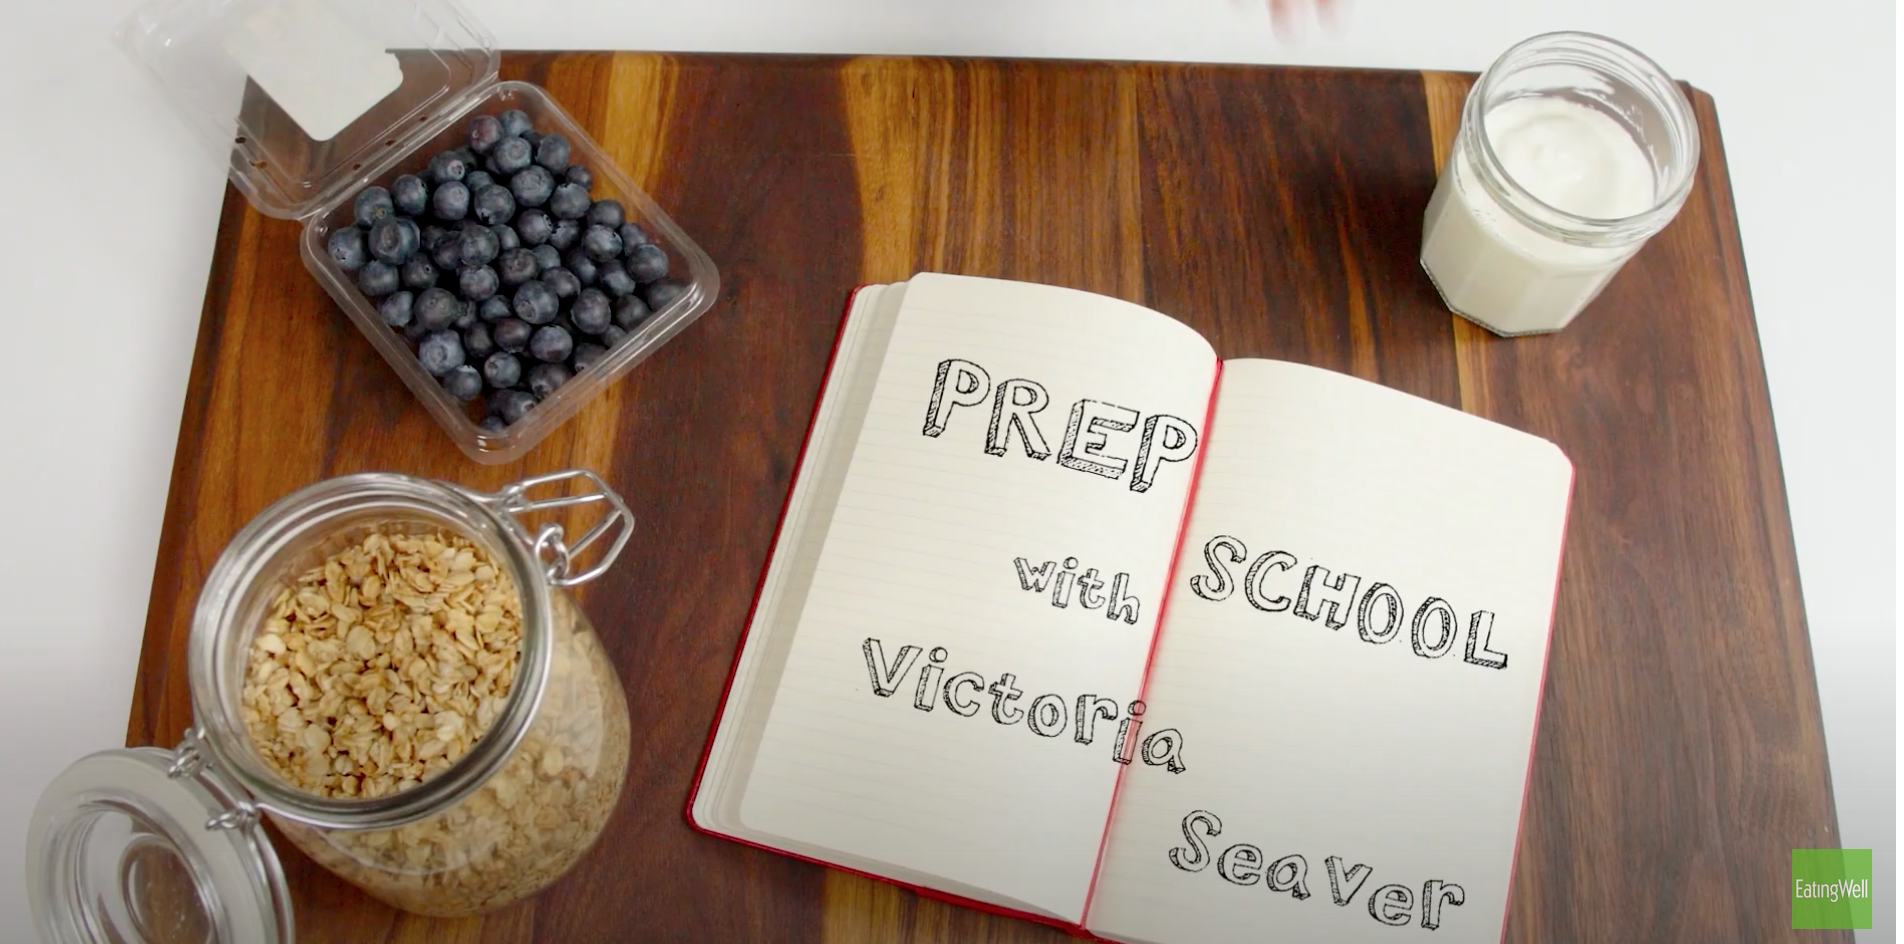 PREP
SCHOOL
with
Victoria
Seaver
EatingWell